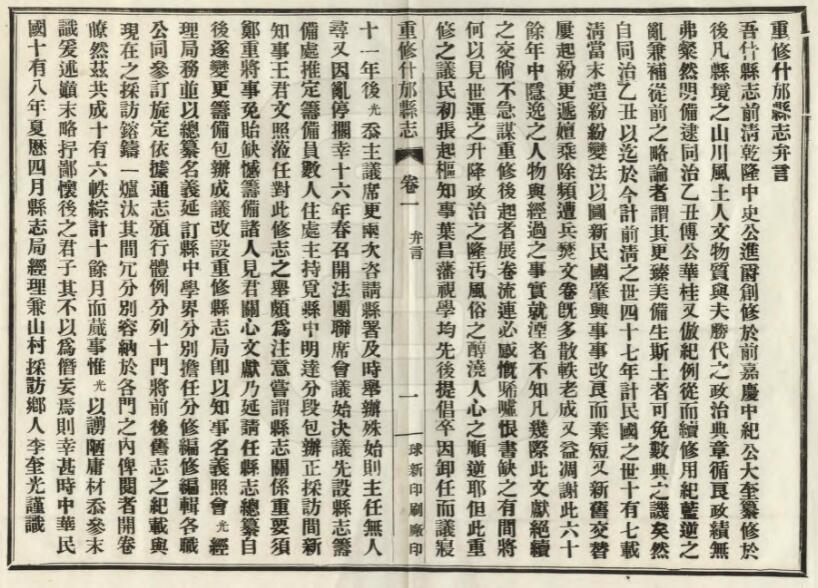 重修什邡縣志弁言
吾什縣志前清乾隆中史公進爵創修於前嘉慶中紀公大奎纂修於
後凡縣境之山川風土人文物質與夫勝代之政治典章循良政績無
弗粲然明備逮同治乙丑傅公華桂又倣紀例從而續修用紀藍逆之
亂兼補從前之略論者謂其更臻美備生斯土者可免數典之譏矣然
自同治乙丑以迄於今計前清之世四十七年計民國之世十有七載
清當末造紛紛變法以圖新民國肇興事事改良而棄短又新舊交替
屢起紛更遞嬗乘除頻遭兵燹文卷旣多散軼老成又益凋謝此六十
餘年中隱逸之人物與經過之事實就湮者不知凡幾際此文獻絕續
之交倘不急謀重修後起者展卷流連必感慨唏噓恨書缺之有間將
何以見世運之升降政治之隆汚風俗之醇澆人心之順逆耶但此重
修之議民初張起樞知事葉昌藩視學均先後提倡卒因卸任而議寢
重修什邡縣志
卷一
弁言
一
球新印刷廠印
十一年後光忝主議席更兩次咨請縣署及時舉辦殊始則主任無人
尋又因亂停擱幸十六年春召開法團聯席會議始決議先設縣志籌
備處推定籌備員數人住處主持覓縣中明達分段包辦正採訪間新
知事王君文照蒞任對此修志之舉頗爲注意嘗謂縣志關係重要須
鄭重將事免貽缺憾籌備諸人見君關心文獻乃延請任縣志總纂自
後遂變更籌備包辦成議改設重修縣志局卽以知事名義照會光經
理局務並以總纂名義延訂縣中學界分別擔任分修編修編輯各職
公同參訂旋定依據通志頒行體例分列十門將前後舊志之紀載與
現在之採訪鎔鑄一爐汰其間冗分別容納於各門之內俾閱者開卷
瞭然茲共成十有六帙綜計十餘月而蕆事惟光以謭陋庸材忝參末
議爰述巔末略抒鄙懷後之君子其不以爲僭妄焉則幸甚時中華民
國十有八年夏曆四月縣志局經理兼山村採訪鄉人李奎光謹識